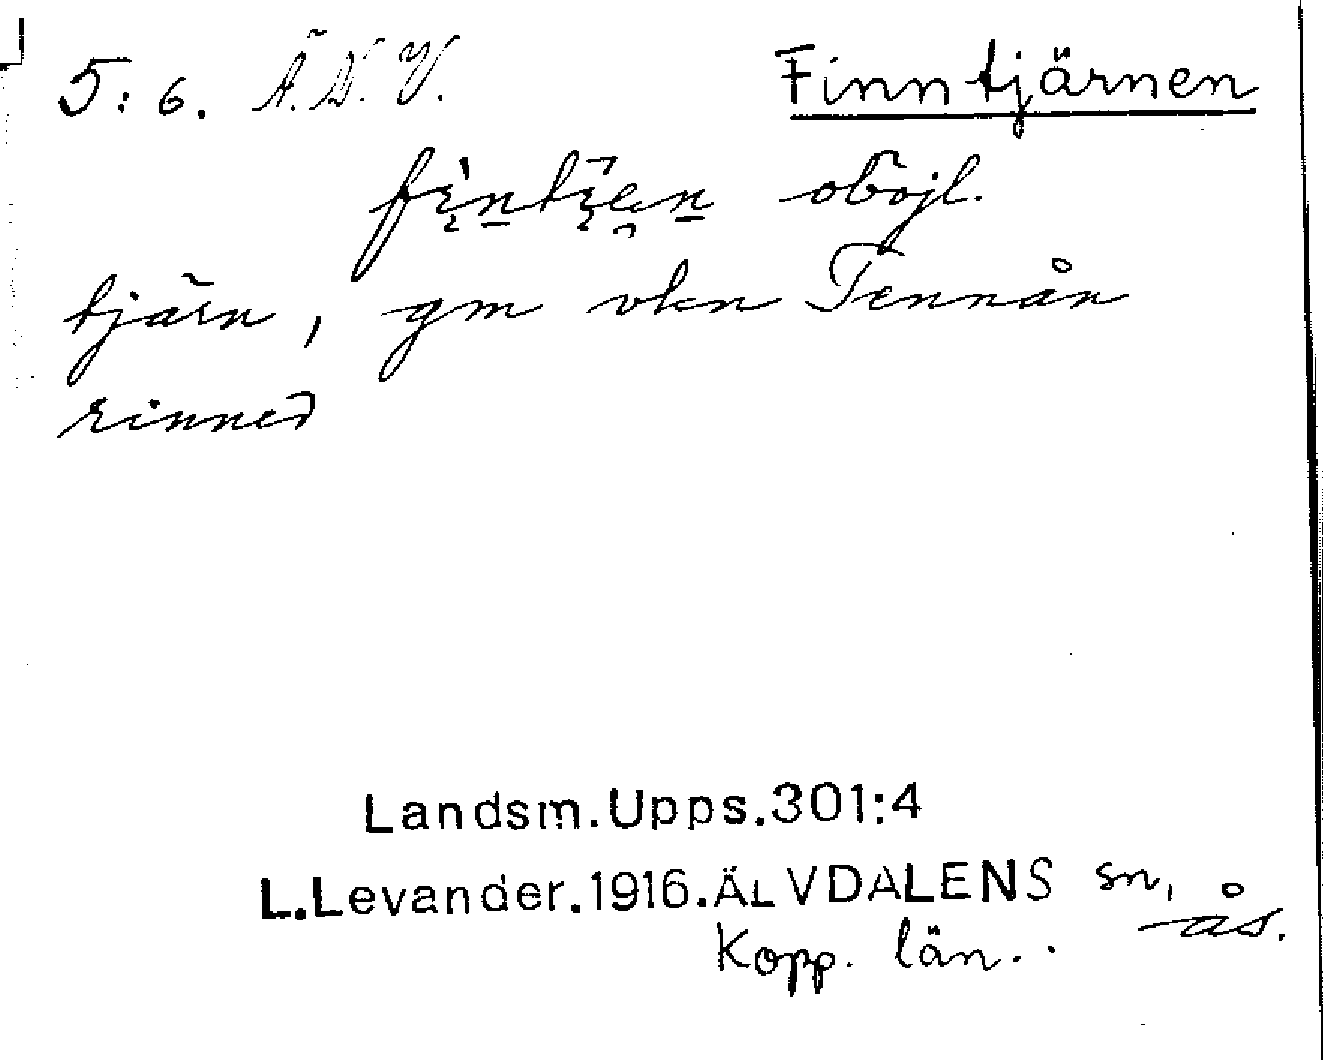 5:6. Ä.D.V. Finntjärnen
oböjl.
tjärn, gm vken Tennån
rinner
Landsm.Upps.301:4
L.Levander.1916.ÄLVDALENS sn, ås.
Kopp. län.